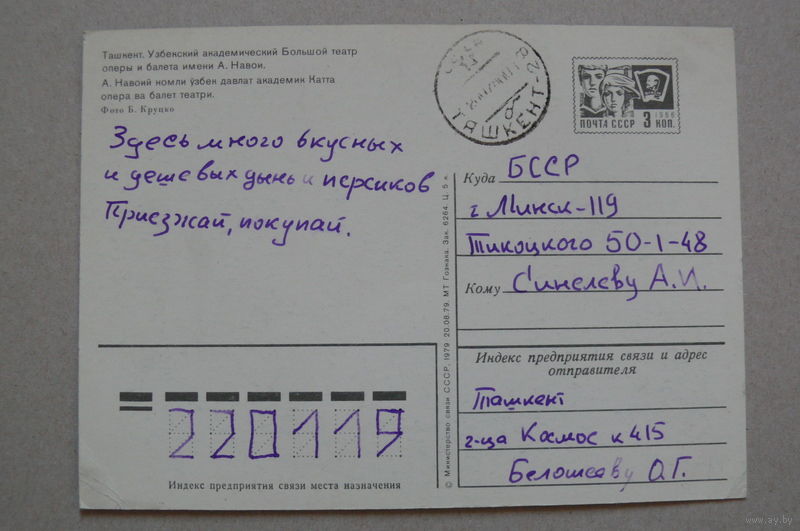 Ташкент. Узбекский академический Большой театр
оперы и балета имени А. Навои.
А. Навоий номли ўзбек давлат академик Катта
опера ва балет театри.
Фото Б. Круцко
Здесь много вкусных
и дешевых дынь и персиков
Приезжай, покупай.
Индекс предприятия связи места назначения
220119
© Министерство связи СССР, 1979 20.08.79. МТ Гознака. Зак. 6264. Ц. 5 к.
ТАШКЕНТ
ПОЧТА СССР 3 КОП.
1966
Куда БССР
г Минск-119
Тикоцкого 50-1-48
Кому Синелеву А.И.
Индекс предприятия связи и адрес
отправителя
Ташкент
г-ца Космос к 415
О.Г.
www.ay.by